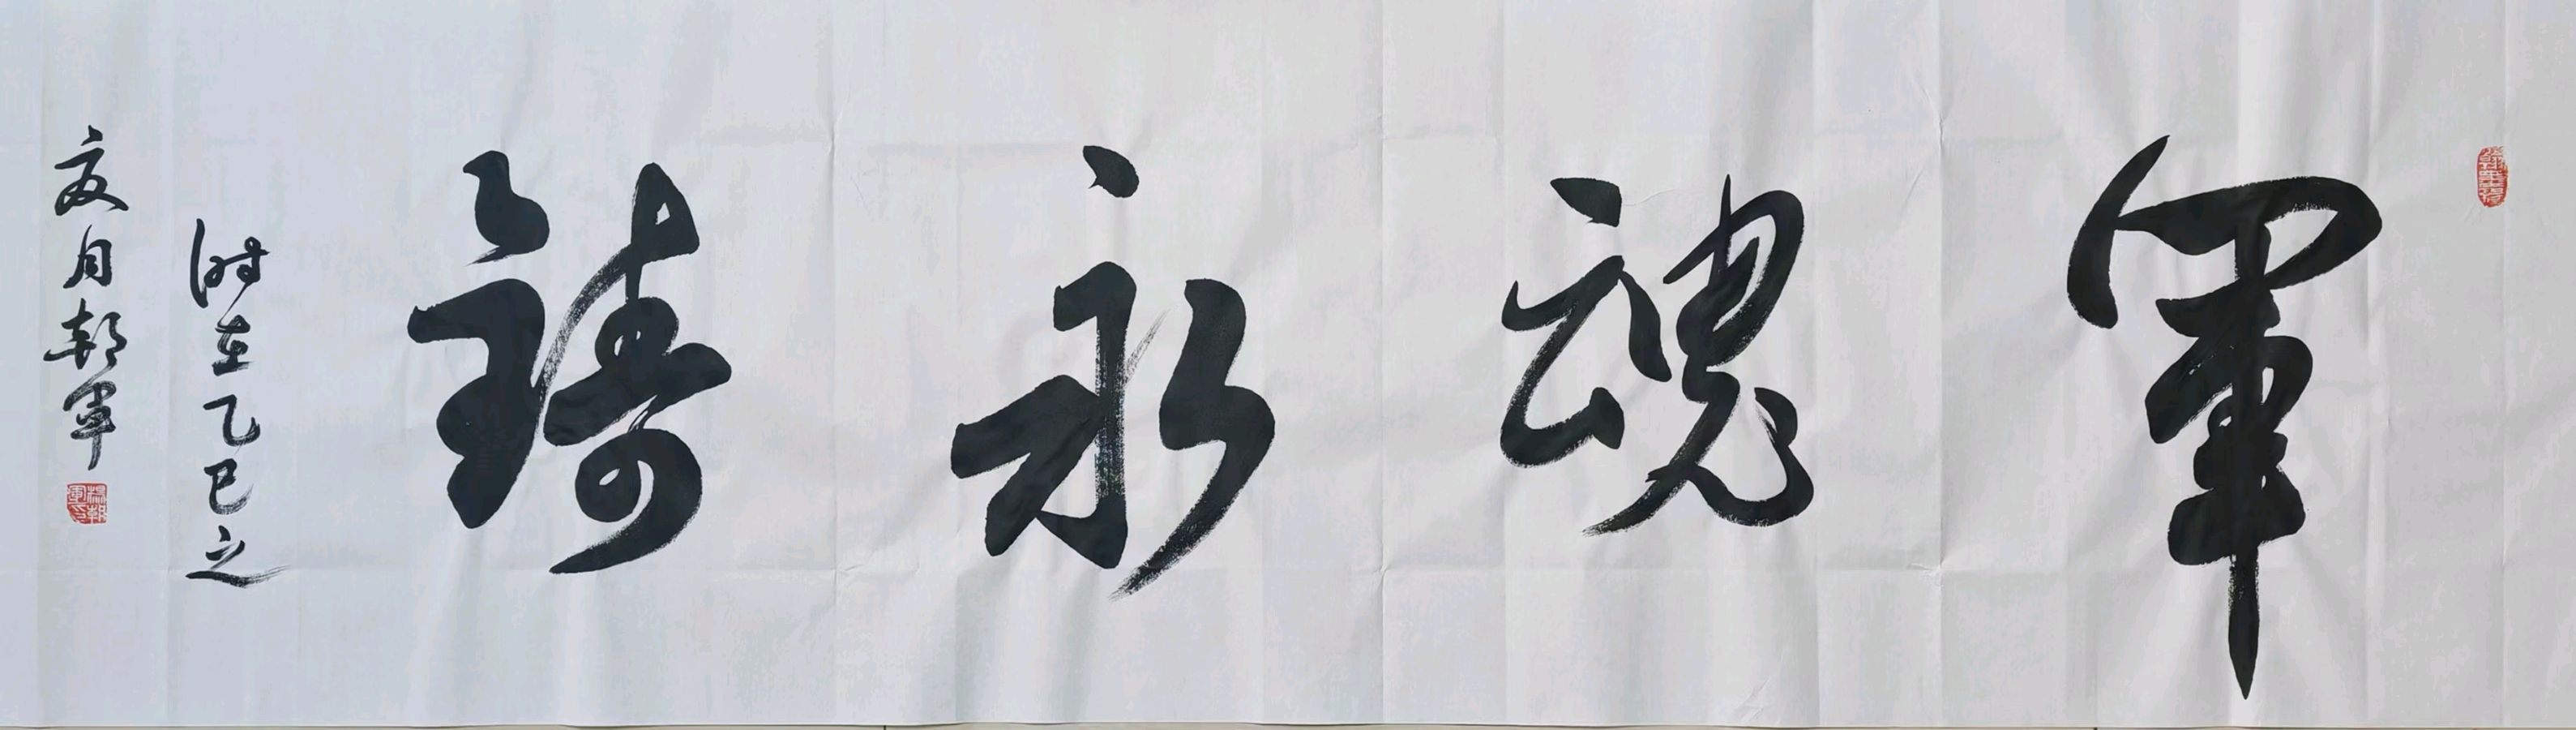 軍魂永鑄
时在乙巳之
夏月朝軍